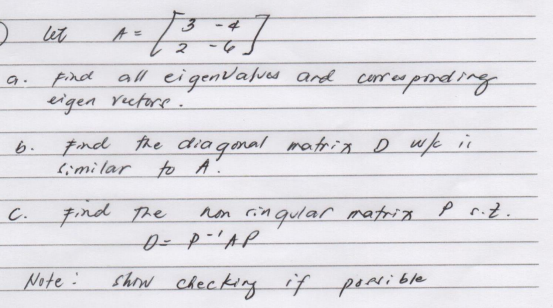 let A = [ 3 -4
2 -6 ]
a. Find all eigenvalues and corresponding
eigen vectors.
b. Find the diagonal matrix D w/c is
similar to A.
c. Find the non singular matrix P s.t.
D = P⁻¹AP
Note: show checking if possible